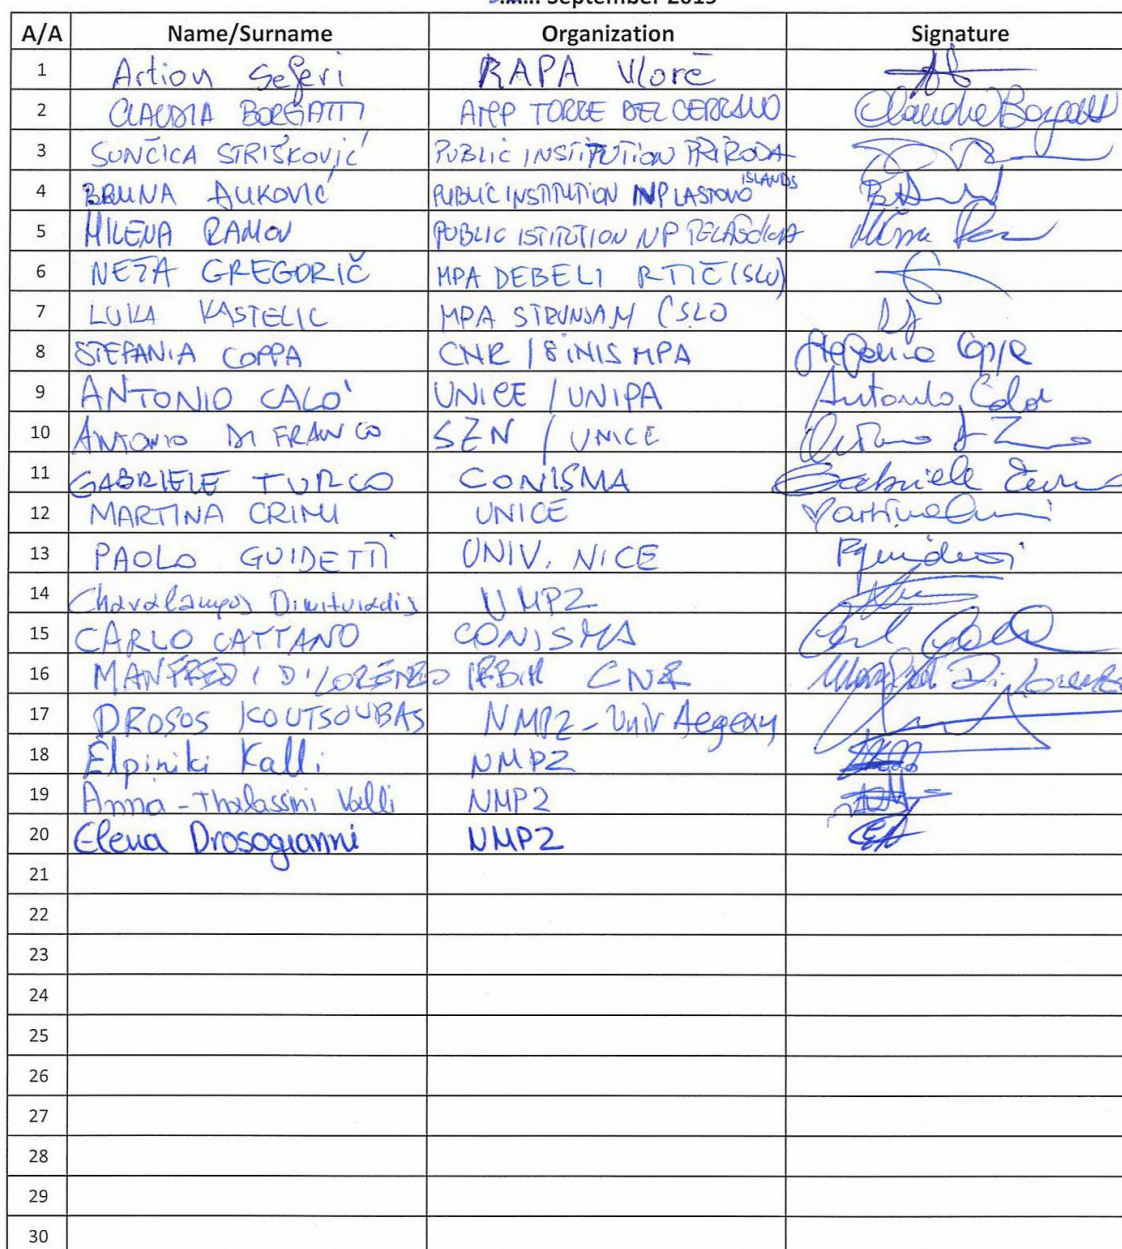 September 2019
A/A Name/Surname Organization Signature
1 Artion Seferi RAPA Vlorë
2 CLAUDIA BORGATTI AMP TORRE DEL CERRANO Claudia Borgatti
3 SUNČICA STRIŠKOVIĆ PUBLIC INSTITUTION PRIRODA
4 BRUNA ĐUKOVIĆ PUBLIC INSTITUTION NP LASTOVO ISLANDS
5 MILENA RAMOV PUBLIC ISTITUTION NP
6 NEŽA GREGORIČ MPA DEBELI RTIČ (SLO)
7 LUKA KASTELIC MPA STRUNJAN (SLO
8 STEFANIA COPPA CNR / SINIS MPA Stefania Coppa
9 ANTONIO CALO' UNICE / UNIPA Antonio Calo
10 ANTONIO DI FRANCO SZN / UNICE
11 GABRIELE TURCO CONISMA Gabriele Turco
12 MARTINA CRIMI UNICE Martina Crimi
13 PAOLO GUIDETTI UNIV. NICE PGuidetti
14 Charalampos Dimitriadis NMPZ
15 CARLO CATTANO CONISMA
16 MANFREDI DI LORENZO IRBIM CNR Manfredi Di Lorenzo
17 DROSOS KOUTSOUBAS NMPZ - Univ Aegean
18 Elpiniki Kalli NMPZ
19 Anna - Thalassini Valli NMPZ
20 Elena Drosogianni NMPZ
21
22
23
24
25
26
27
28
29
30